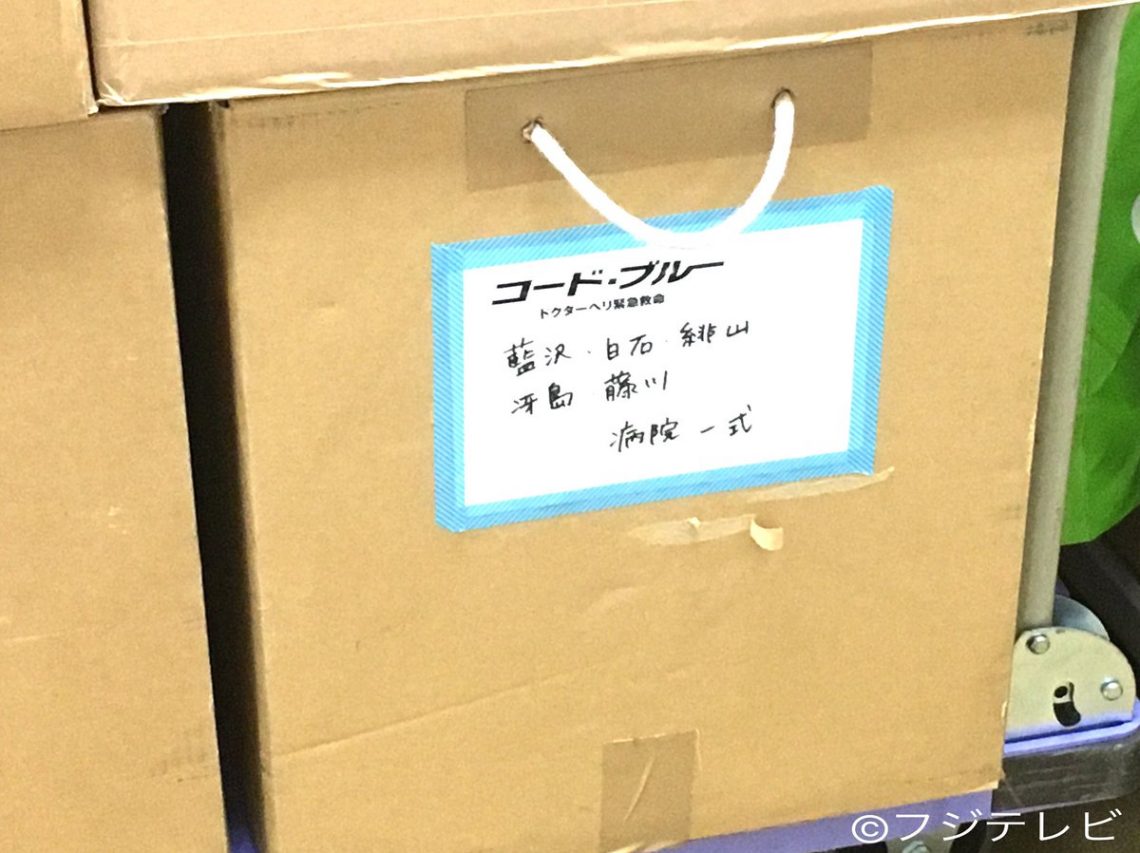 コード・ブルー
ドクターヘリ緊急救命
藍沢・白石・緋山
冴島 藤川
病院一式
©フジテレビ